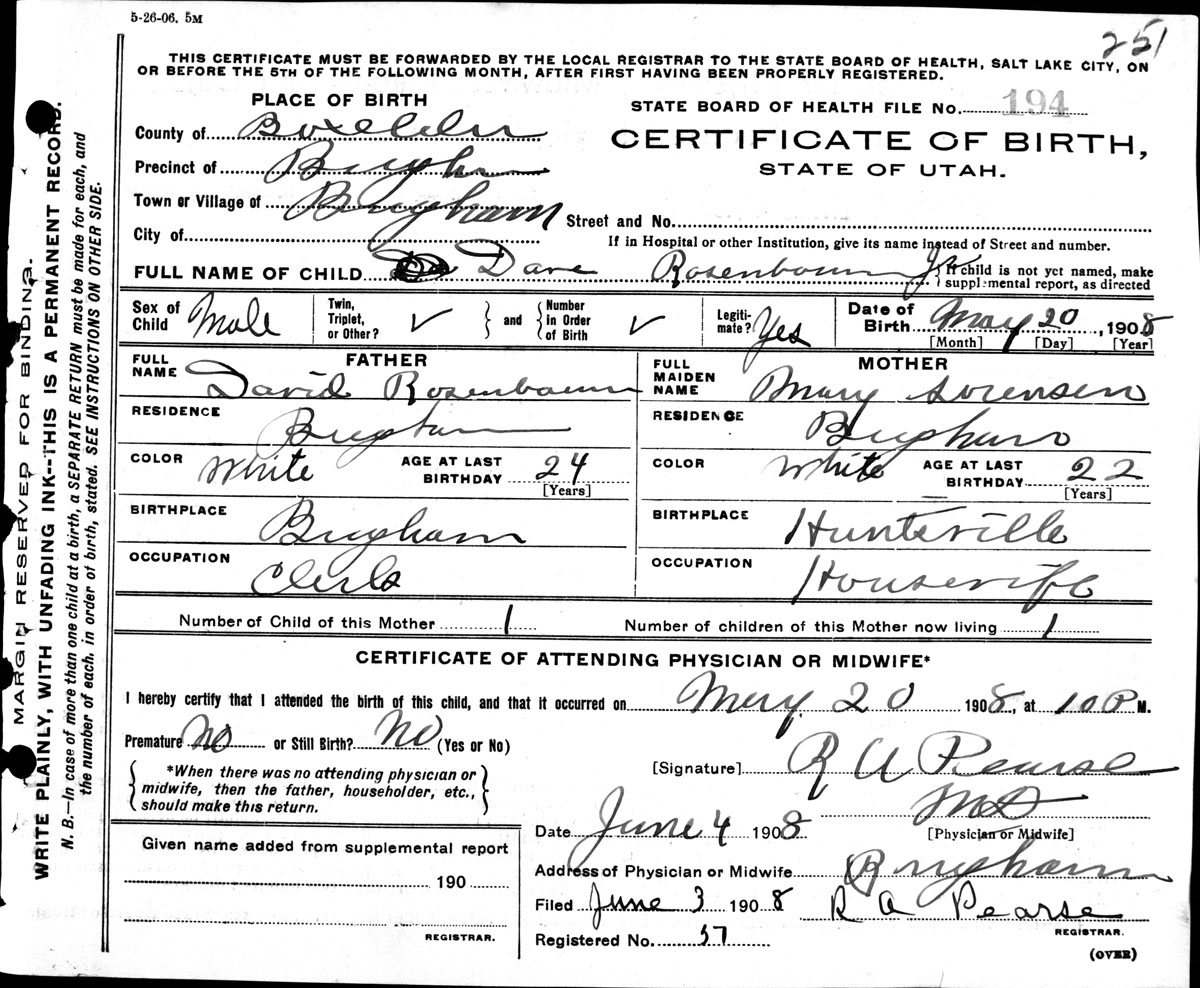 5-26-06. 5M
251
THIS CERTIFICATE MUST BE FORWARDED BY THE LOCAL REGISTRAR TO THE STATE BOARD OF HEALTH, SALT LAKE CITY, ON
OR BEFORE THE 5TH OF THE FOLLOWING MONTH, AFTER FIRST HAVING BEEN PROPERLY REGISTERED.
PLACE OF BIRTH
STATE BOARD OF HEALTH FILE No. 194
County of Boxelder
CERTIFICATE OF BIRTH,
STATE OF UTAH.
Precinct of Brigham
Town or Village of Brigham
Street and No.
City of
If in Hospital or other Institution, give its name instead of Street and number.
FULL NAME OF CHILD Dave Rosenbaum Jr
If child is not yet named, make
supplemental report, as directed
Sex of Child Male
Twin, Triplet, or Other? ✓
and
Number in Order of Birth ✓
Legiti-mate? Yes
Date of Birth May 20, 1908
[Month] [Day] [Year]
FATHER
FULL NAME David Rosenbaum
RESIDENCE Brigham
COLOR White AGE AT LAST BIRTHDAY 24
[Years]
BIRTHPLACE Brigham
OCCUPATION Clerk
MOTHER
FULL MAIDEN NAME Mary Sorensen
RESIDENCE Brigham
COLOR White AGE AT LAST BIRTHDAY 22
[Years]
BIRTHPLACE Huntsville
OCCUPATION Housewife
Number of Child of this Mother 1 Number of children of this Mother now living 1
CERTIFICATE OF ATTENDING PHYSICIAN OR MIDWIFE*
I hereby certify that I attended the birth of this child, and that it occurred on May 20 1908, at 10 P M.
Premature No or Still Birth? No (Yes or No)
*When there was no attending physician or
midwife, then the father, householder, etc.,
should make this return.
[Signature] R A Pearse
MD
[Physician or Midwife]
Date June 4 1908
Address of Physician or Midwife Brigham
Filed June 3 1908 R A Pearse
REGISTRAR.
Registered No. 37
(OVER)
Given name added from supplemental report
190
REGISTRAR.
MARGIN RESERVED FOR BINDING.
WRITE PLAINLY, WITH UNFADING INK--THIS IS A PERMANENT RECORD.
N. B.—In case of more than one child at a birth, a SEPARATE RETURN must be made for each, and
the number of each, in order of birth, stated. SEE INSTRUCTIONS ON OTHER SIDE.